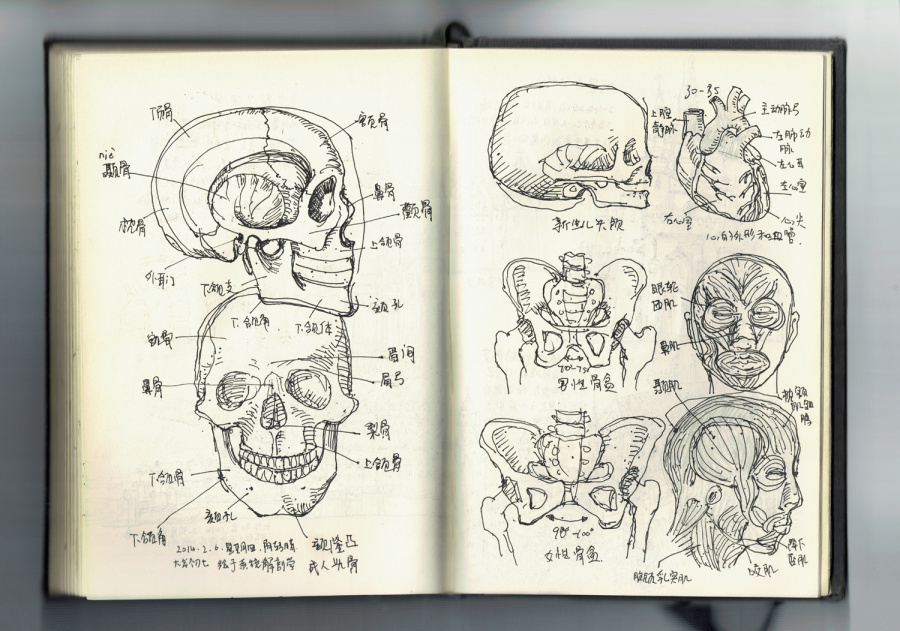 顶骨
额骨
niè
颞骨
鼻骨
颧骨
枕骨
上颌骨
外耳门
下颌支
下颌角
下颌体
颏孔
额骨
眉间
鼻骨
眉弓
梨骨
上颌骨
下颌骨
颏孔
下颌角
颏隆凸
2014.2.6.星期四.阴转晴
大年初七 绘于系统解剖学
成人头骨
新生儿头颅
30-35
上腔
静脉
主动脉弓
左肺动
脉
左心耳
左心室
右心室
心尖
心的外形和血管.
70-75°
男性骨盆
90°-100°
女性骨盆
眼轮
匝肌
鼻肌
颞肌
枕额
肌
腱
膜
降下
唇肌
咬肌
胸锁乳突肌